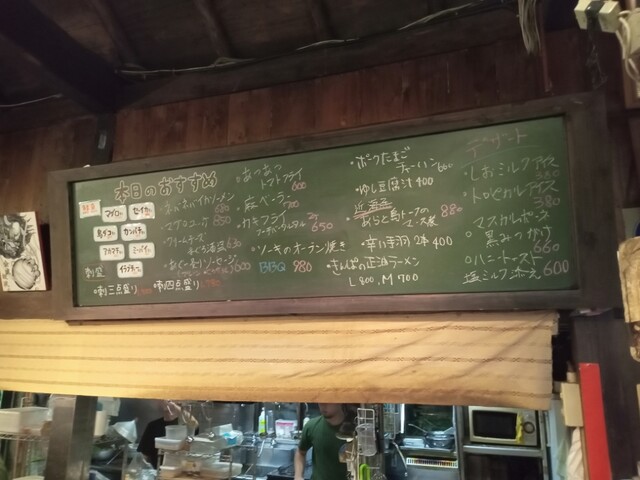 本日のおすすめ
鮮魚
マグロ
セーイカ
島ダコ
カンパチ
アカマチ
ミーバイ
イラブチャー
刺盛
・刺三点盛り
・刺四点盛り
680
・マグロユッケ 850
・クリームチーズ
630
600
・あつあつ
トマトフライ
600
・麻ベーラー
700
・カキフライ
650
・ソーキのオーブン焼き
BBQ 980
・ポークたまご
チャーハン 600
・ゆし豆腐汁 400
・近海魚
あらと島トーフの
マース煮 880
・辛い手羽 2本 400
・きんぱの正油ラーメン
L 800, M 700
デザート
・しおミルクアイス
380
・トロピカルアイス
380
・マスカルポーネ
黒みつがけ
660
・ハニートースト
塩ミルク添え 600